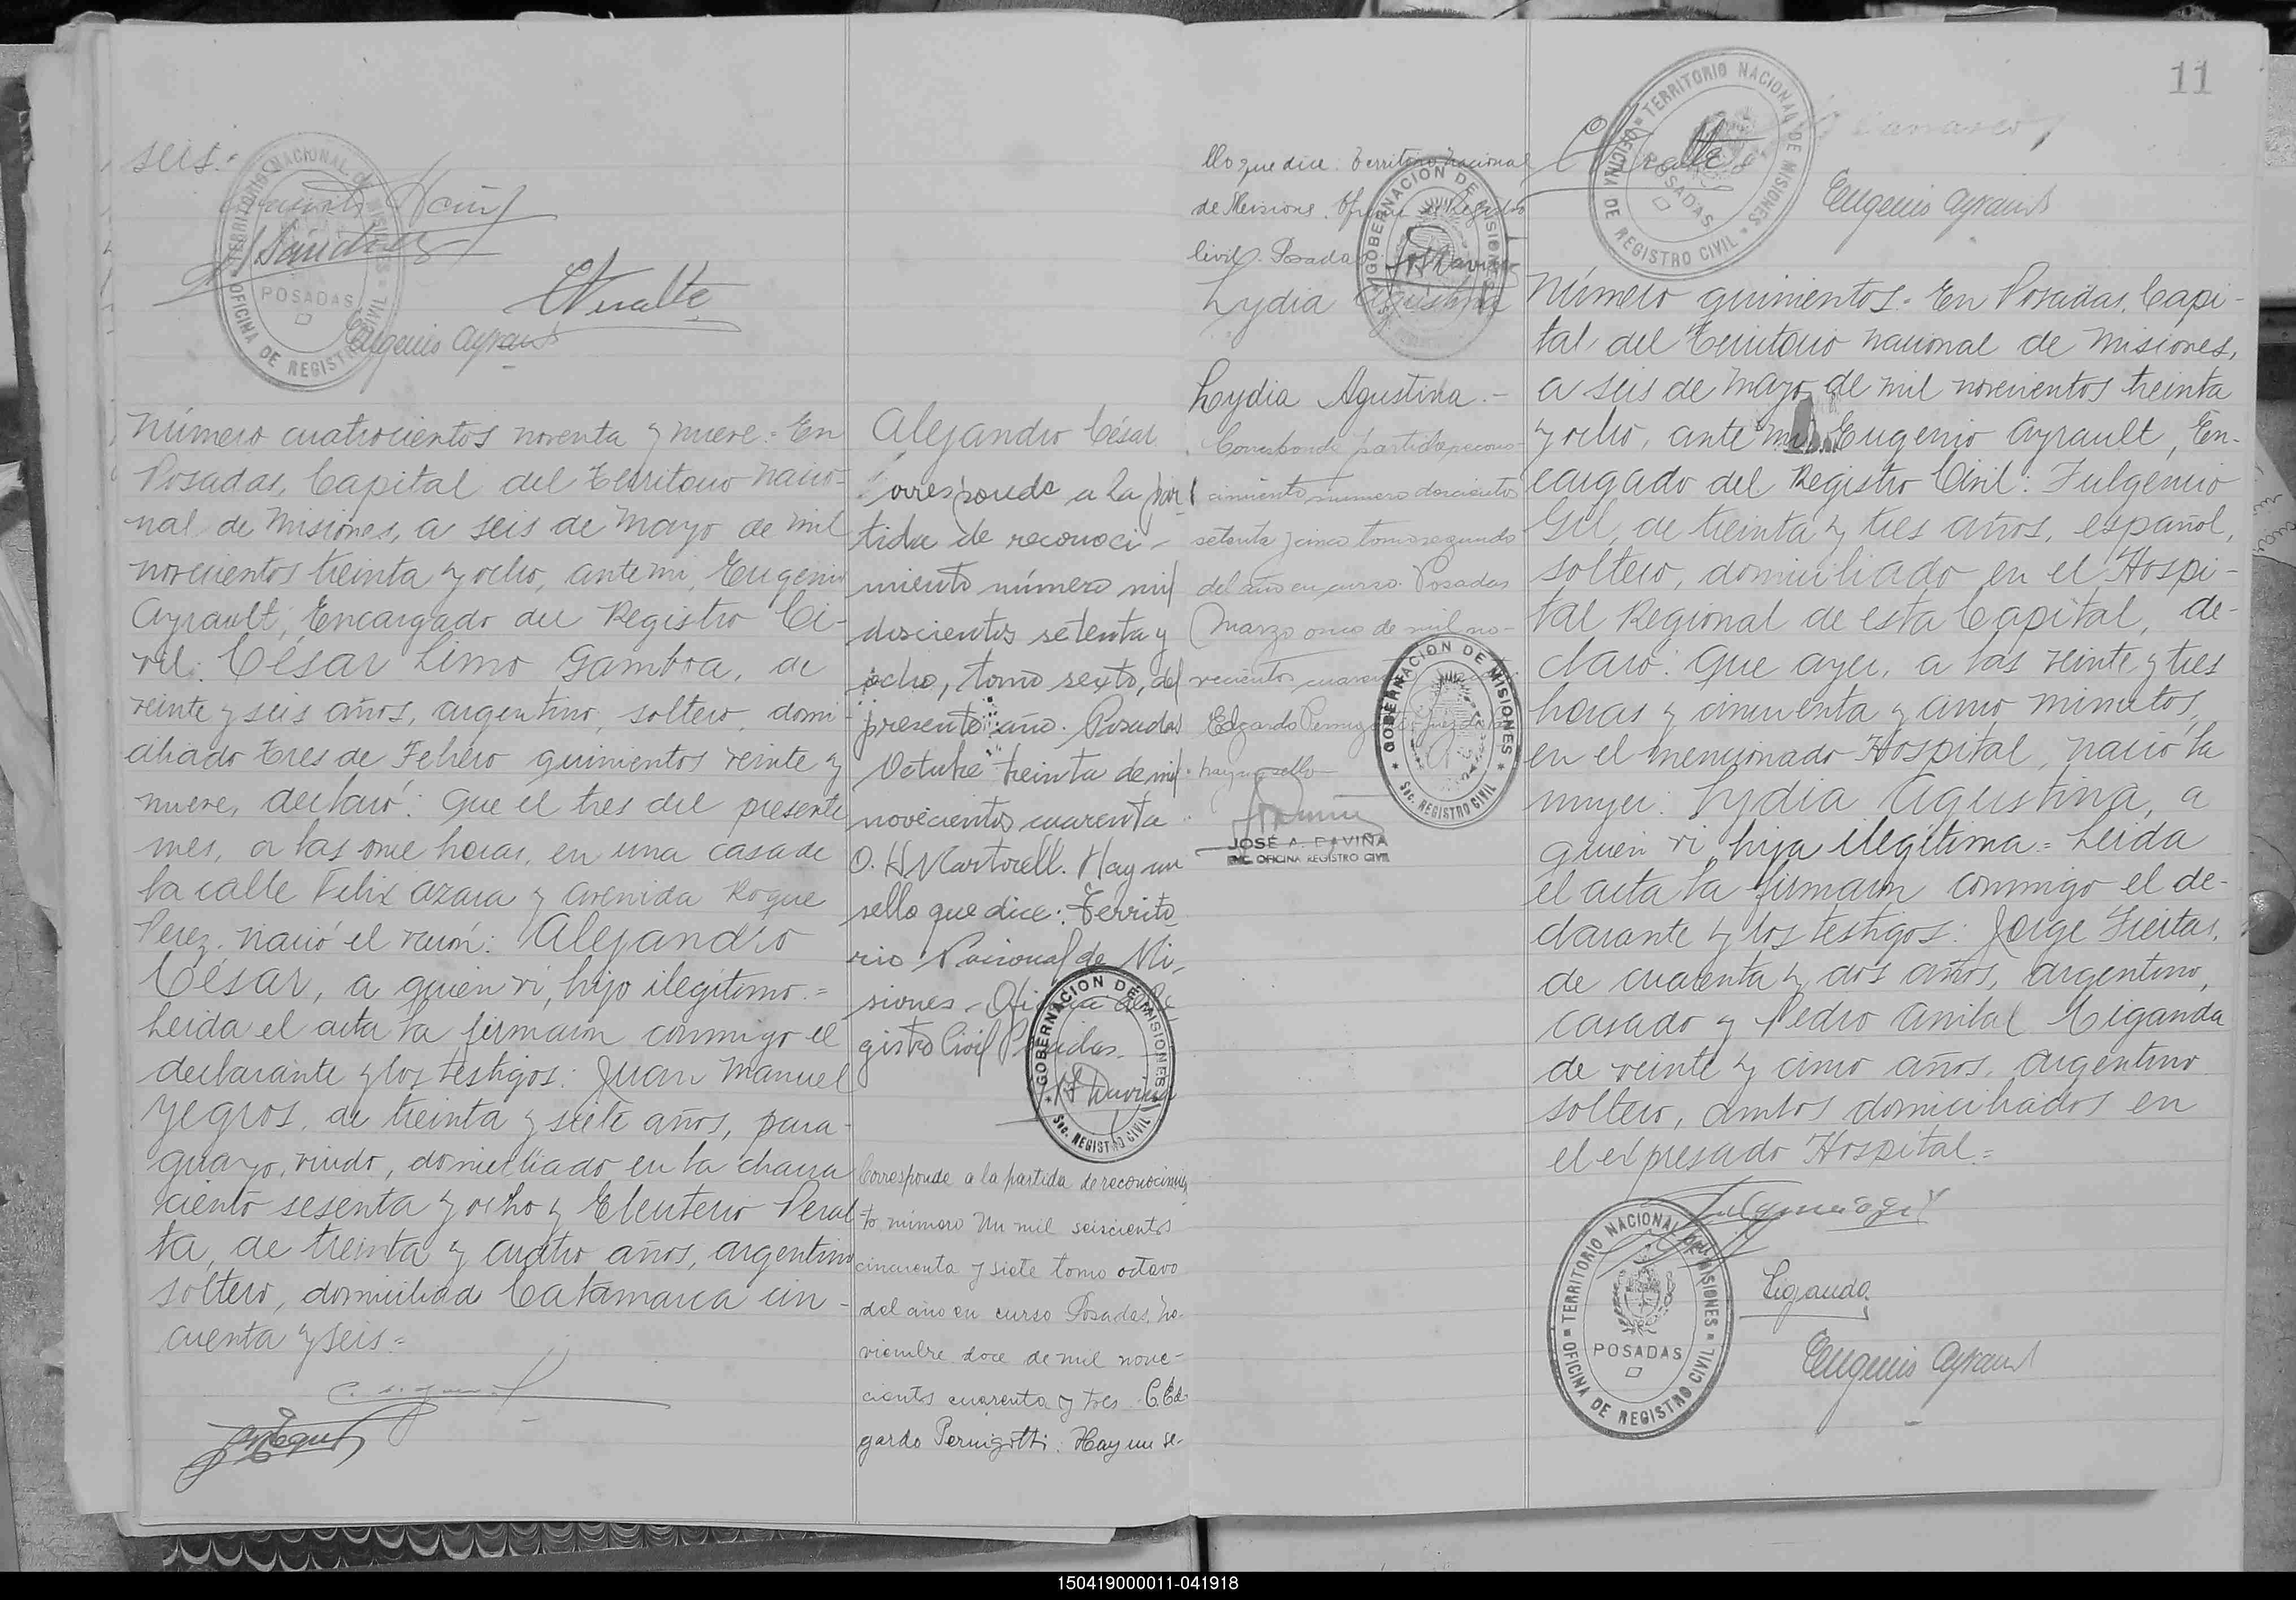 seis.-
POSADAS
Eugenio Ayrault
Número cuatrocientos noventa y nueve.- En
Posadas, Capital del Territorio nacio-
nal de Misiones, a seis de Mayo de mil
novecientos treinta y ocho, ante mi, Eugenio
Ayrault, Encargado del Registro Ci-
vil: César Limo Gamboa, de
veinte y seis años, argentino, soltero, domi-
ciliado Tres de Febrero quinientos veinte y
nueve, declaró: Que el tres del presente
mes, a las once horas, en una casa de
la calle Felix Azara y avenida Roque
Perez, nació el varón: Alejandro
César, a quien vi, hijo ilegítimo.=
Leida el acta la firmaron conmigo el
declarante y los testigos: Juan Manuel
Yegros, de treinta y siete años, para-
guayo, viudo, domiciliado en la chacra
ciento sesenta y ocho y Eleuterio Peral
ta, de treinta y cuatro años, argentino
soltero, domiciliad Catamarca cin-
cuenta y seis.=
Alejandro César
orresponde a la par
tida de reconoci-
miento número mil
doscientos setenta y
ocho, tomo sexto, del
presente año. Posadas
Octubre treinta de mil
novecientos cuarenta
O. H. Martorell. Hay un
sello que dice: Territo
rio Nacional de Mi-
siones - Oficina de Re
gistro Civil Posadas.
GOBERNACION DE MISIONES
Sec. REGISTRO CIVIL
Corresponde a la partida de reconocimien
to número Un mil seiscientos
cincuenta y siete tomo octavo
del año en curso Posadas, no-
viembre doce de mil nove-
cientos cuarenta y tres C. Ed-
gardo Pernigotti: Hay un se-
llo que dice: Territorio Nacional
de Misiones. Oficina de Registro
Civil. Posadas
Lydia Agustina
Lydia Agustina.-
Corresponde partida recono-
cimiento número doscientos
setenta y cinco tomo segundo
del año en curso. Posadas
Marzo once de mil no-
vecientos
Edgardo
hay un sello
GOBERNACION DE MISIONES
Sec. REGISTRO CIVIL
JOSÉ A. DAVIÑA
ENC. OFICINA REGISTRO CIVIL
11
TERRITORIO NACIONAL DE MISIONES
POSADAS
OFICINA DE REGISTRO CIVIL
Eugenio Ayrault
Número quinientos.- En Posadas, Capi-
tal del Territorio nacional de Misiones,
a seis de Mayo de mil novecientos treinta
y ocho, ante mi Eugenio Ayrault, En-
cargado del Registro Civil: Fulgencio
Gil, de treinta y tres años, español,
soltero, domiciliado en el Hospi-
tal Regional de esta Capital, de-
claró: Que ayer, a las veinte y tres
horas y cincuenta y cinco minutos,
en el mencionado Hospital, nació la
mujer: Lydia Agustina, a
quien vi hija ilegítima.= Leida
el acta la firmaron conmigo el de-
clarante y los testigos: Jorge Freitas,
de cuarenta y dos años, argentino,
casado y Pedro Anibal Ciganda
de veinte y cinco años, argentino
soltero, ambos domiciliados en
el expresado Hospital.=
TERRITORIO NACIONAL DE MISIONES
POSADAS
OFICINA DE REGISTRO CIVIL
Ciganda
Eugenio Ayrault
150419000011-041918